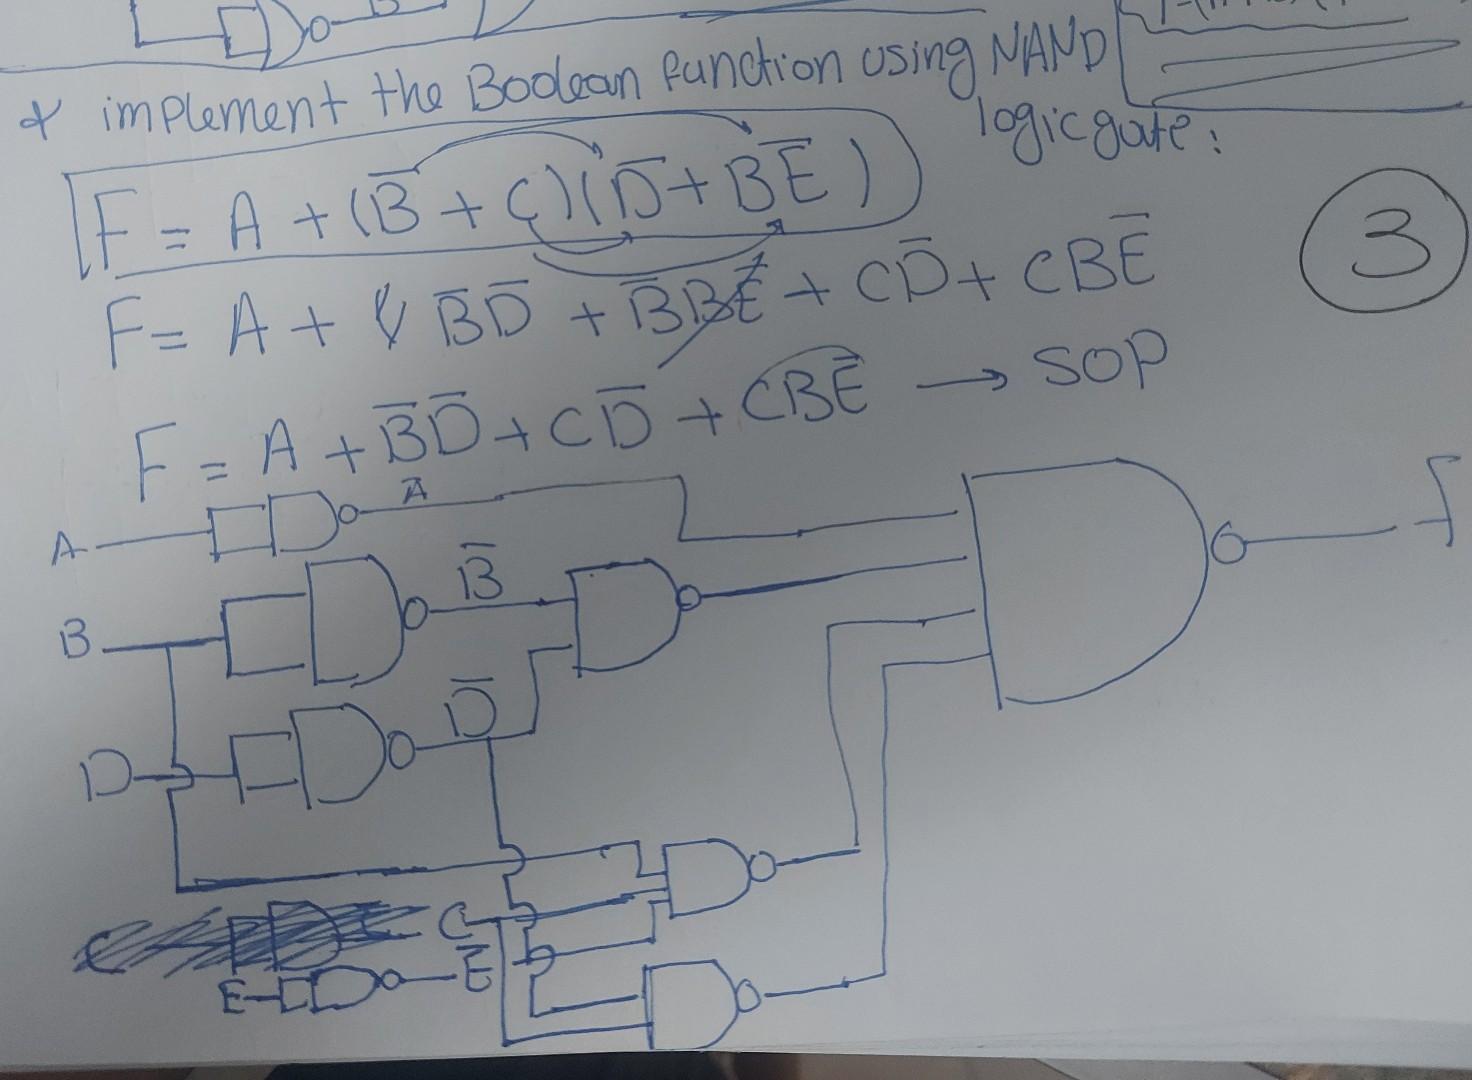 B
* implement the Boolean function using NAND
logic gate:
F = A + (B̅ + C)(D̅ + BE̅)
3
F = A + B̅D̅ + B̅BE̅ + CD̅ + CBE̅
F = A + B̅D̅ + CD̅ + CBE̅ → SOP
A A̅ F
B B̅
D D̅
C C
E E̅